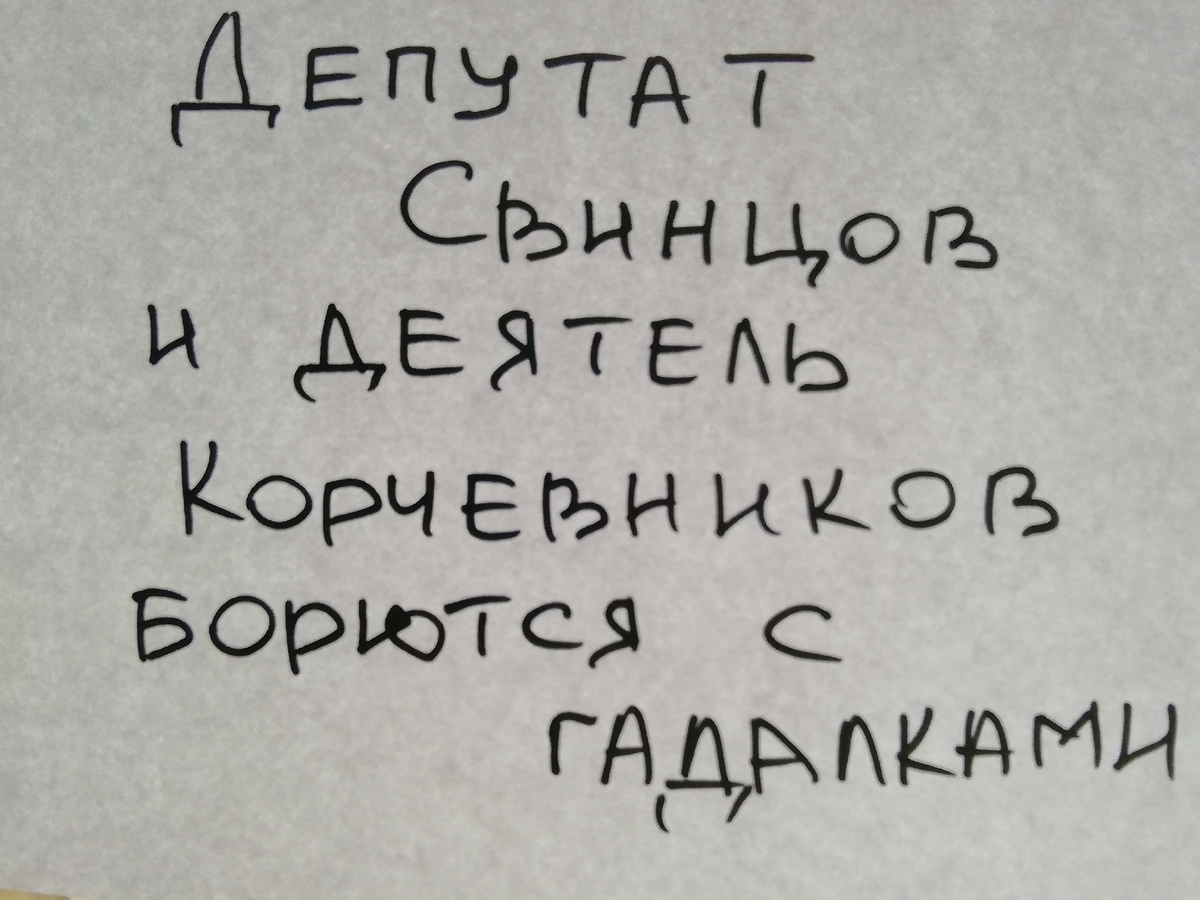 Депутат
Свинцов
и деятель
Корчевников
борются с
гадалками